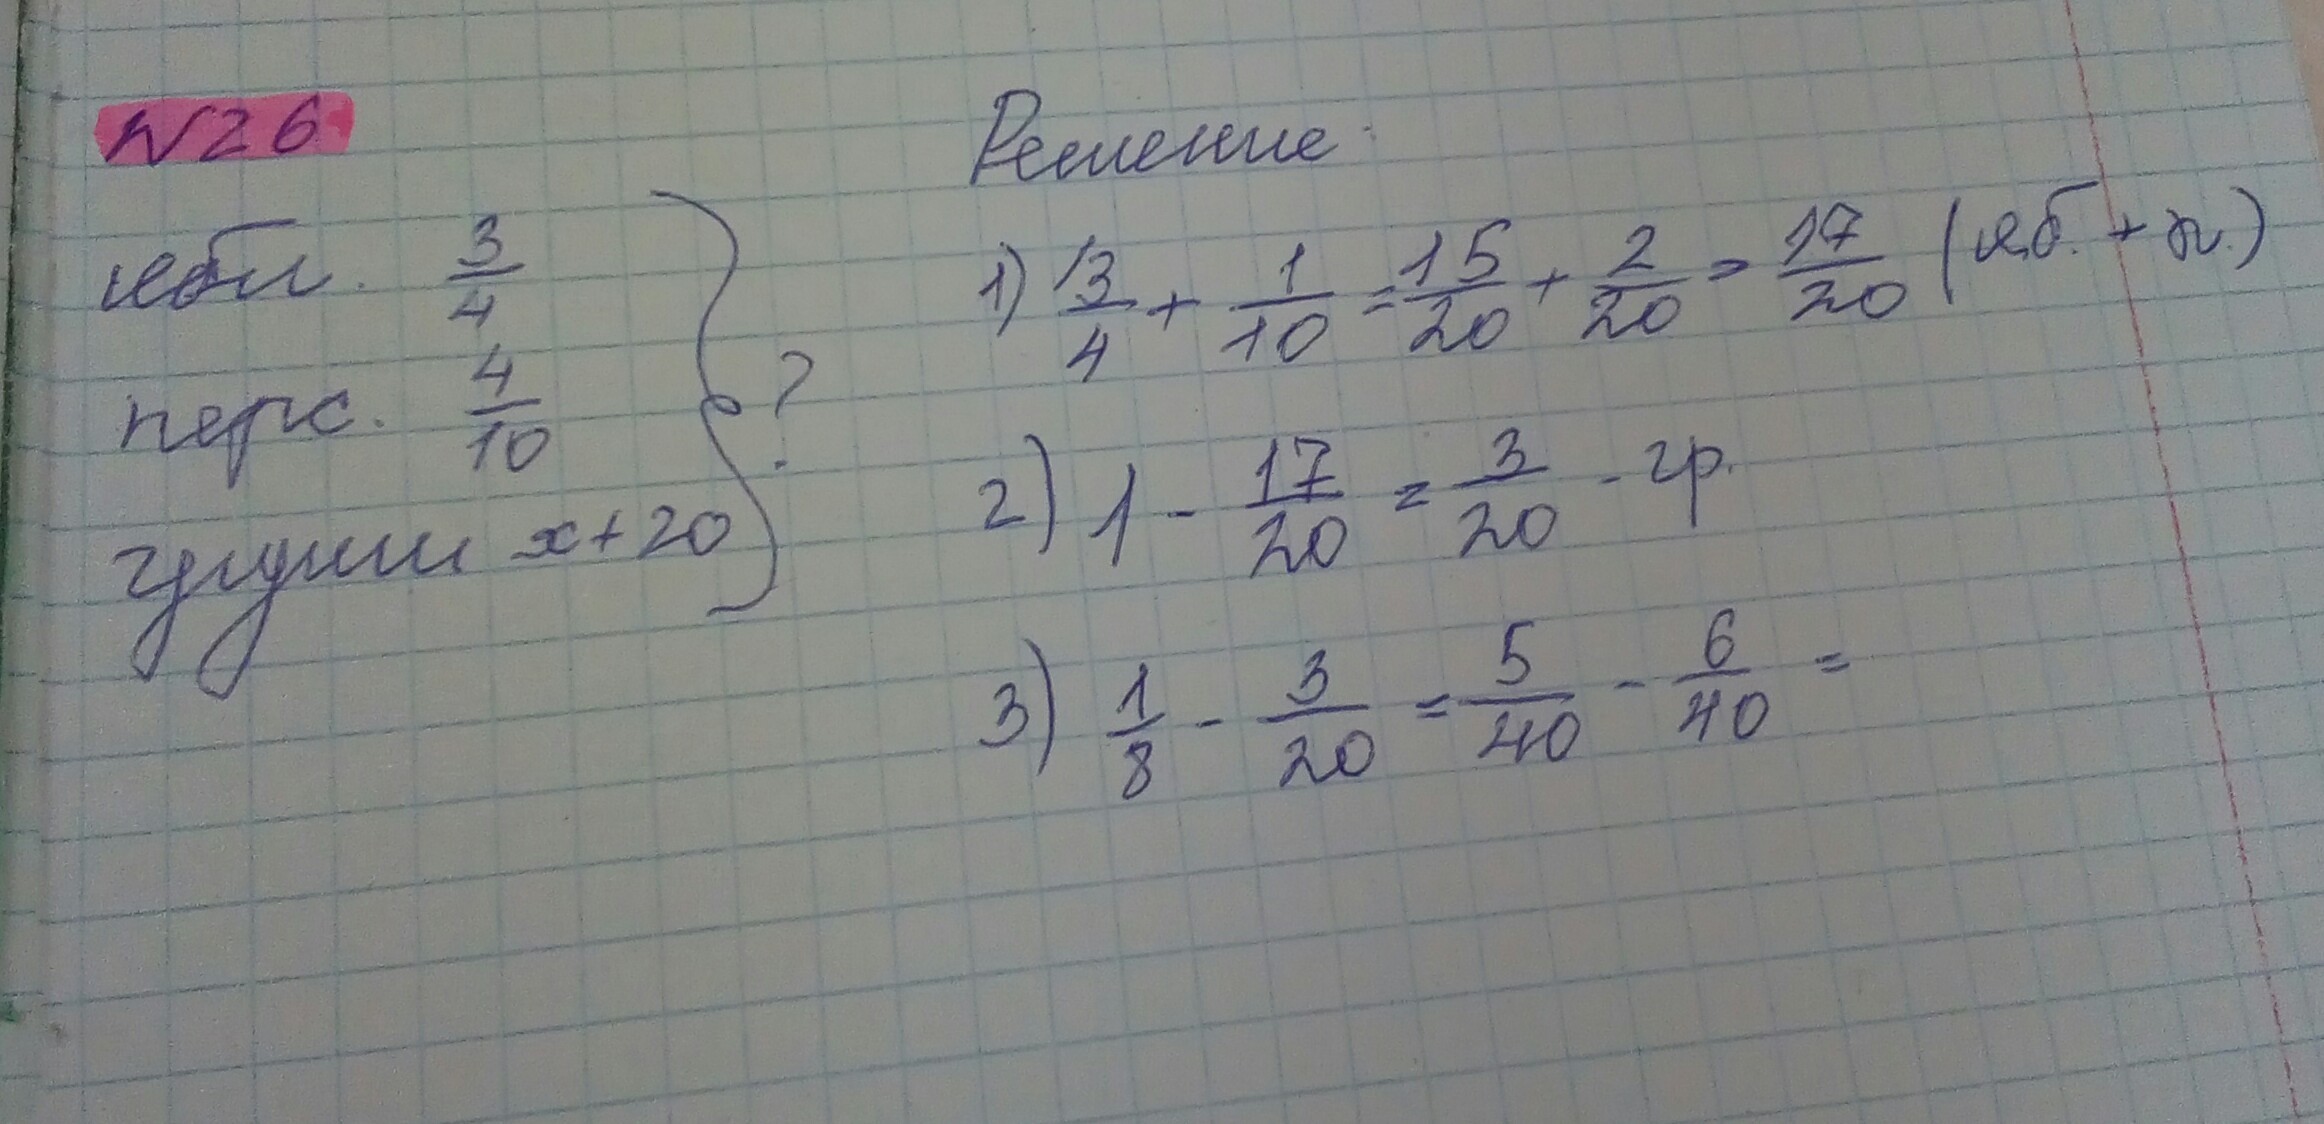 N26
ябл. 3/4
перс. 4/10
груши x+20
?
Решение:
1) 3/4 + 1/10 = 15/20 + 2/20 = 17/20 (яб. + п.)
2) 1 - 17/20 = 3/20 - гр.
3) 1/8 - 3/20 = 5/40 - 6/40 =